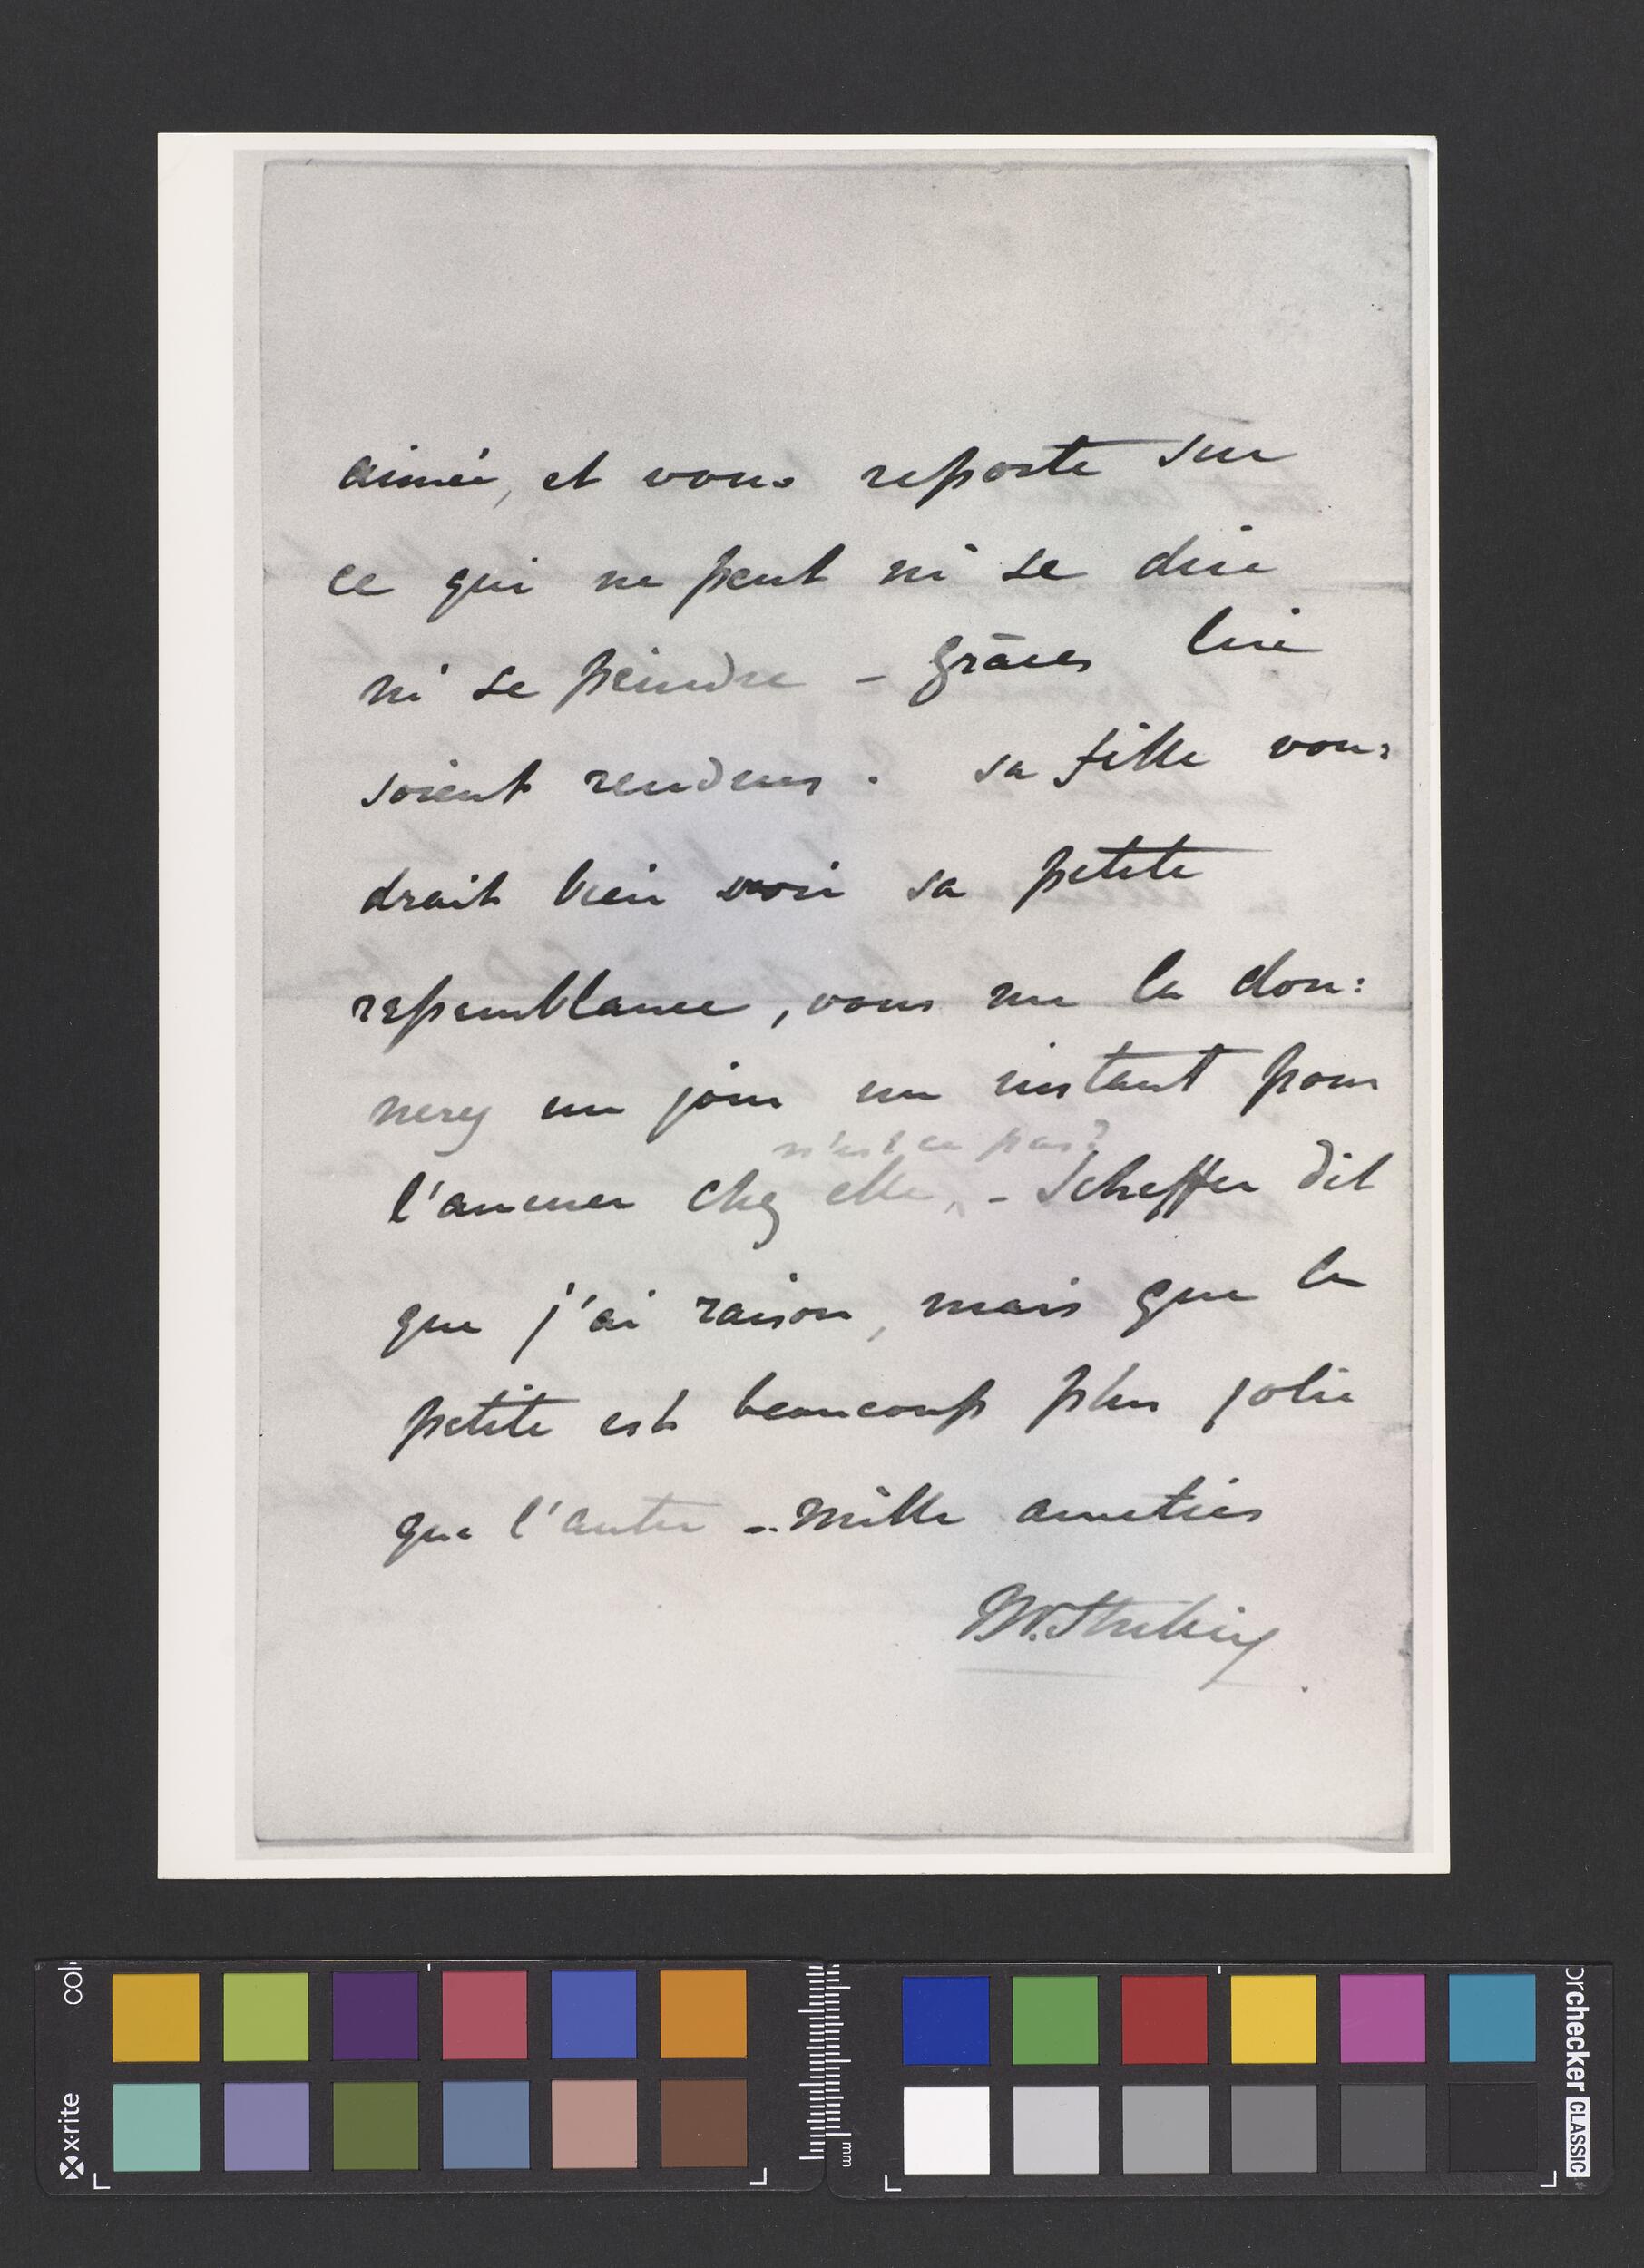 aimée, et vous reporte sur
ce qui ne peut ni se dire
ni se peindre – grâces lui
soient rendues. sa fille vou:
drait bien voir sa petite
ressemblance, vous me la don:
nerez un jour un instant pour
n'est ce pas?
l'amener chez elle, – Scheffer dit
que j'ai raison, mais que la
petite est beaucoup plus jolie
que l'autre – mille amitiés
x-rite
mm
colorchecker CLASSIC